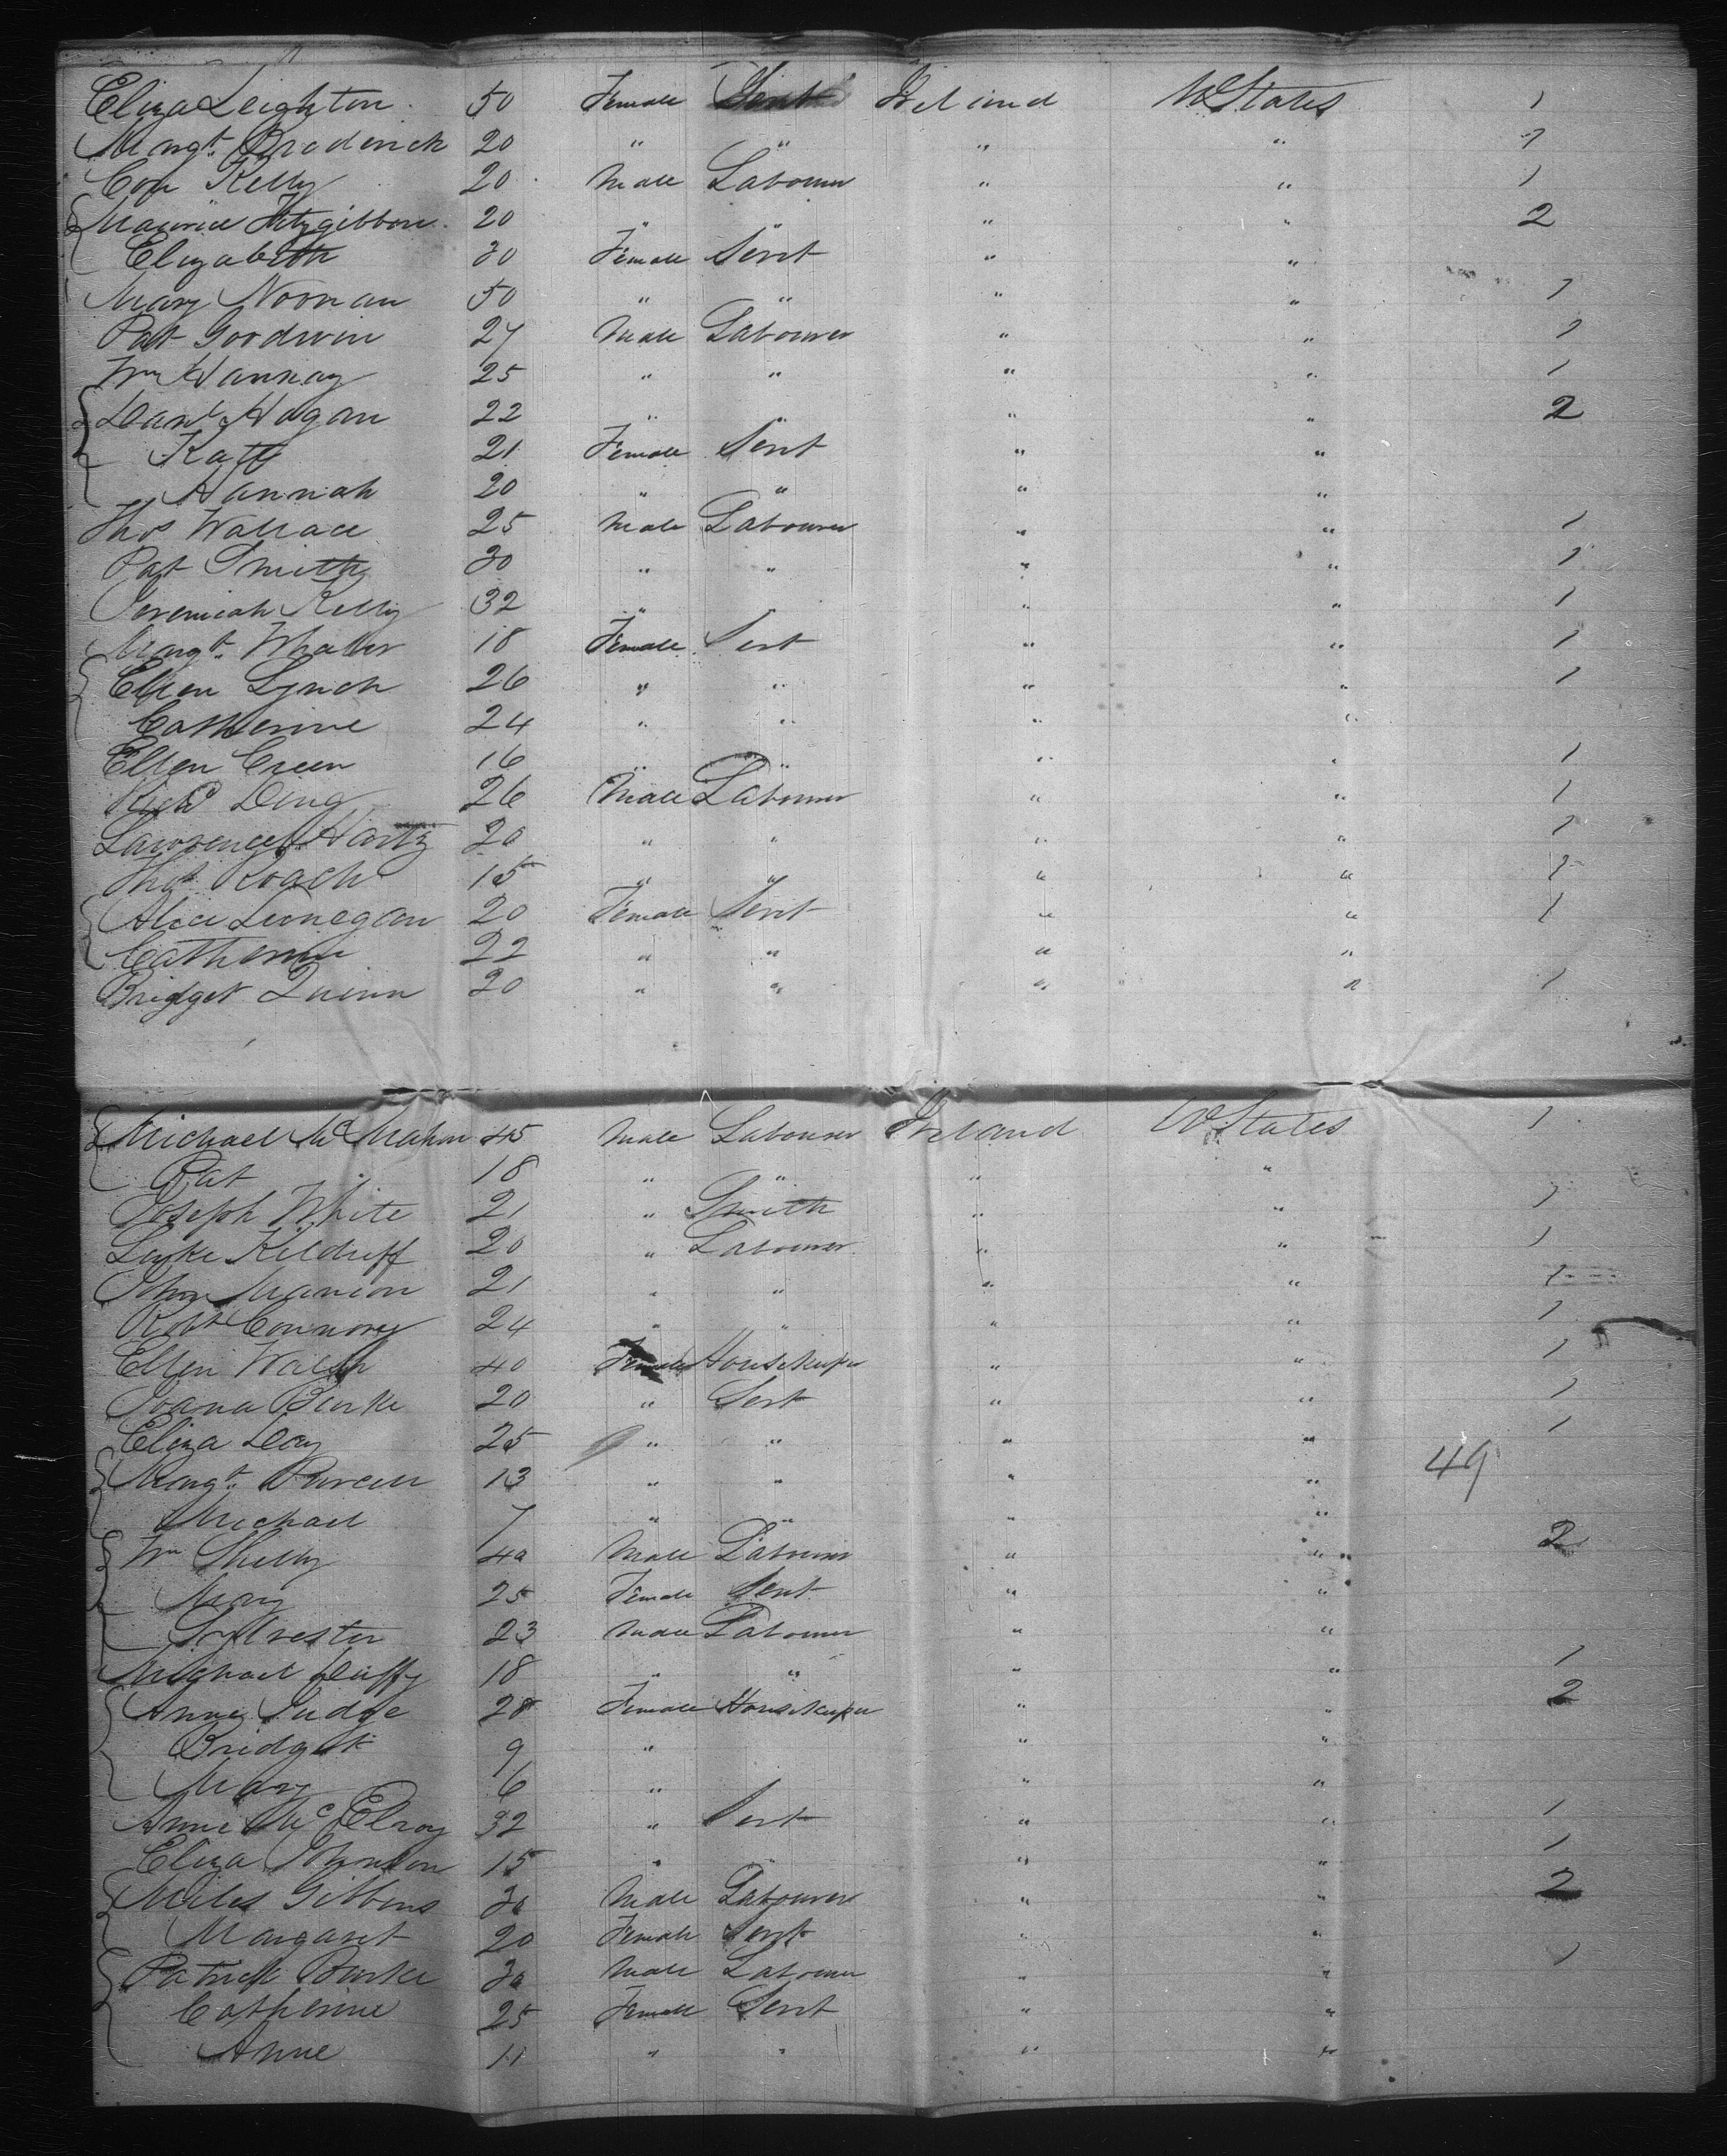 Eliza Leighton 50 Female Servt Ireland U States 1
Margt. Broderick 20 " " " " 1
Con Kelly 20 Male Labourer " " 1
Maurice Fitzgibbon 20 " " " " 2
Elizabeth 30 Female Servt " "
Mary Noonan 50 " " " " 1
Pat Goodwin 27 Male Labourer " " 1
Wm Hannay 25 " " " " 1
Danl Hogan 22 " " " 2
Kate 21 Female Servt " "
Hannah 20 " " " "
Thos Wallace 25 Male Labourer " " 1
Pat Smith 30 " " " " 1
Jeremiah Kelly 32 " " " " 1
Margt. 18 Female Servt " " 1
Ellen Lynch 26 " " " " 1
Catherine 24 " " " "
Ellen Green 16 " " " " 1
Richd 26 Male Labourer " " 1
Lawrence 20 " " " " 1
Thos Roach 15 " " " " 1
Alice Lonegan 20 Female Servt " " 1
Catherine 22 " " " "
Bridget Quinn 20 " " " " 1
Michael McMahon 45 Male Labourer Ireland U States 1
Pat 18 " " " "
Joseph White 21 " Smith " " 1
Luke Kilduff 20 " Labourer " " 1
John Manion 21 " " " " 1
Robt Connory 24 " " " " 1
Ellen Walsh 40 Female Housekeeper " " 1
Joana Burke 20 " Servt " " 1
Eliza Day 25 " " " " 1
Margt. Purcell 13 " " " " 49
Michael 7 " " " "
Wm Shelly 40 Male Labourer " " 2
Mary 25 Female Servt " "
Sylvester 23 Male Labourer " "
Michael Duffy 18 " " " " 1
Anne Judge 28 Female Housekeeper " " 2
Bridget 9 " " "
Mary 6 " " "
Anne McElroy 32 " Servt " " 1
Eliza Johnston 15 " " " " 1
Miles Gibbons 30 Male Labourer " " 2
Margaret 20 Female Servt " "
Patrick Burke 30 Male Labourer " " 1
Catherine 25 Female Servt " "
Anne 11 " " " "